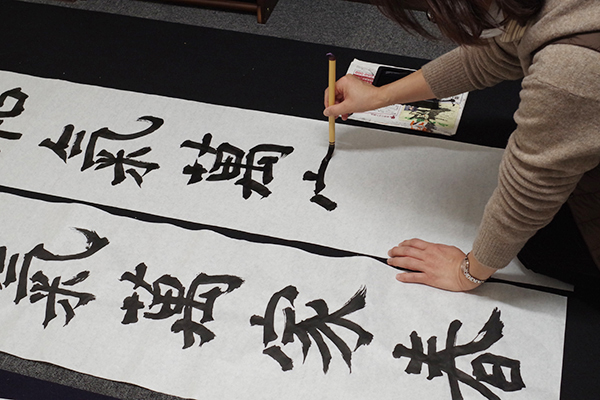 氣萬
氣萬家春